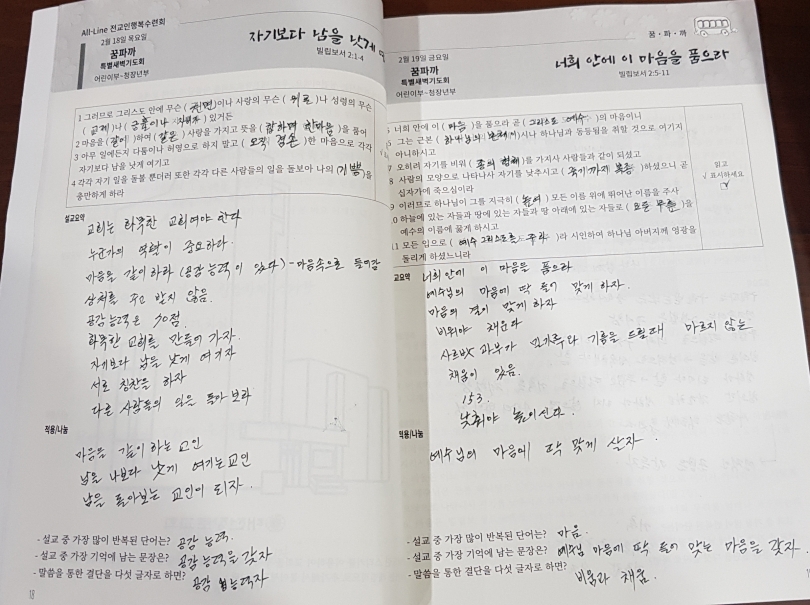 All-Line 전교인행복수련회
2월 18일 목요일
꿈파까
특별새벽기도회
어린이부~청장년부
자기보다 남을 낫게
빌립보서 2:1-4
1 그러므로 그리스도 안에 무슨 (권면)이나 사랑의 무슨 (위로)나 성령의 무슨
(교제)나 (긍휼이나 자비)가 있거든
2 마음을 (같이)하여 (같은) 사랑을 가지고 뜻을 (합하며 한마음)을 품어
3 아무 일에든지 다툼이나 허영으로 하지 말고 (오직 겸손)한 마음으로 각각
자기보다 남을 낫게 여기고
4 각각 자기 일을 돌볼 뿐더러 또한 각각 다른 사람들의 일을 돌보아 나의 (기쁨)을
충만하게 하라
설교요약
교회는 화목한 교회여야 한다
누군가의 역할이 중요하라.
마음을 같이하라 (공감능력이 있다) - 마음속으로 들어감
상처를 주고 받지 않음.
공감능력은 50점.
화목한 교회를 만들어 가자.
자기보다 남을 낫게 여기자
서로 칭찬을 하자
다른 사람들의 일을 돌아보라
적용/나눔
마음을 같이 하는 교인
남을 나보다 낫게 여기는 교인
남을 돌아보는 교인이 되자.
- 설교 중 가장 많이 반복된 단어는? 공감 능력.
- 설교 중 가장 기억에 남는 문장은? 공감 능력을 갖자
- 말씀을 통한 결단을 다섯 글자로 하면? 공감 능력자
18
꿈·파·까
2월 19일 금요일
꿈파까
특별새벽기도회
어린이부~청장년부
너희 안에 이 마음을 품으라
빌립보서 2:5-11
너희 안에 이 (마음)을 품으라 곧 (그리스도 예수)의 마음이니
그는 근본 (하나님의 본체)시나 하나님과 동등됨을 취할 것으로 여기지
아니하시고
7 오히려 자기를 비워 (종의 형체)를 가지사 사람들과 같이 되셨고
8 사람의 모양으로 나타나사 자기를 낮추시고 (죽기까지 복종)하셨으니 곧
십자가에 죽으심이라
9 이러므로 하나님이 그를 지극히 (높여) 모든 이름 위에 뛰어난 이름을 주사
10 하늘에 있는 자들과 땅에 있는 자들과 땅 아래에 있는 자들로 (모든 무릎)을
예수의 이름에 꿇게 하시고
11 모든 입으로 (예수 그리스도를 주라)라 시인하여 하나님 아버지께 영광을
돌리게 하셨느니라
읽고
√ 표시하세요
√
교요약
너희 안에 이 마음을 품으라
예수님의 마음에 딱 들어 맞게 하자.
마음의 결이 맞게 하자
비워야 채운다
사르밧 과부가 밀가루와 기름을 드릴때 마르지 않는
채움이 있음.
153.
낮춰야 높이신다.
적용/나눔
예수님의 마음에 딱 맞게 살자.
- 설교 중 가장 많이 반복된 단어는? 마음.
- 설교 중 가장 기억에 남는 문장은? 예수님 마음에 딱 들어 맞는 마음을 갖자.
- 말씀을 통한 결단을 다섯 글자로 하면? 비움과 채움.